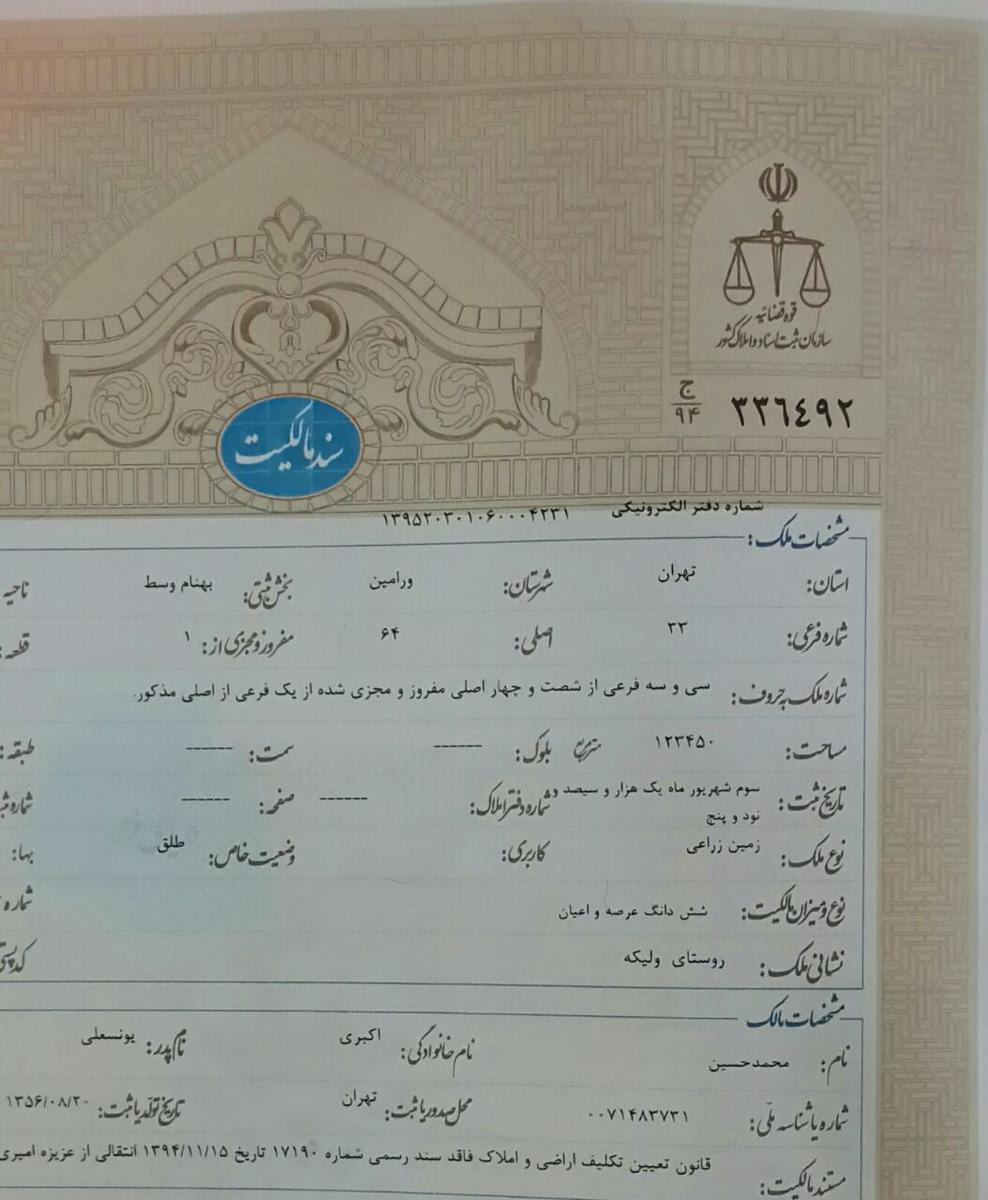 قوه قضائیه
سازمان ثبت اسناد و املاک کشور
ج
۹۴
۳۳۶۴۹۲
سند مالکیت
شماره دفتر الکترونیکی ۱۳۹۵۲۰۳۰۱۰۶۰۰۰۴۲۳۱
مشخصات ملک:
استان: تهران شهرستان: ورامین بخش ثبتی: بهنام وسط ناحیه
شماره فرعی: ۳۳ اصلی: ۶۴ مفروز و مجزی از: ۱ قطعه:
شماره ملک به حروف: سی و سه فرعی از شصت و چهار اصلی مفروز و مجزی شده از یک فرعی از اصلی مذکور.
مساحت: ۱۲۳۴۵۰ مترمربع بلوک: ------ سمت: ------ طبقه:
تاریخ ثبت: سوم شهریور ماه یک هزار و سیصد و نود و پنج شماره دفتر املاک: ------ صفحه: ------
نوع ملک: زمین زراعی کاربری: وضعیت خاص: طلق بها:
نوع و میزان مالکیت: شش دانگ عرصه و اعیان شماره
نشانی ملک: روستای ولیکه
مشخصات مالک
نام: محمدحسین نام خانوادگی: اکبری نام پدر: یونسعلی
شماره یا شناسه ملی: ۰۰۷۱۴۸۳۷۳۱ محل صدور یا ثبت: تهران تاریخ تولد یا ثبت: ۱۳۵۶/۰۸/۲۰
مستند مالکیت: قانون تعیین تکلیف اراضی و املاک فاقد سند رسمی شماره ۱۷۱۹۰ تاریخ ۱۳۹۴/۱۱/۱۵ انتقالی از عزیزه امیری